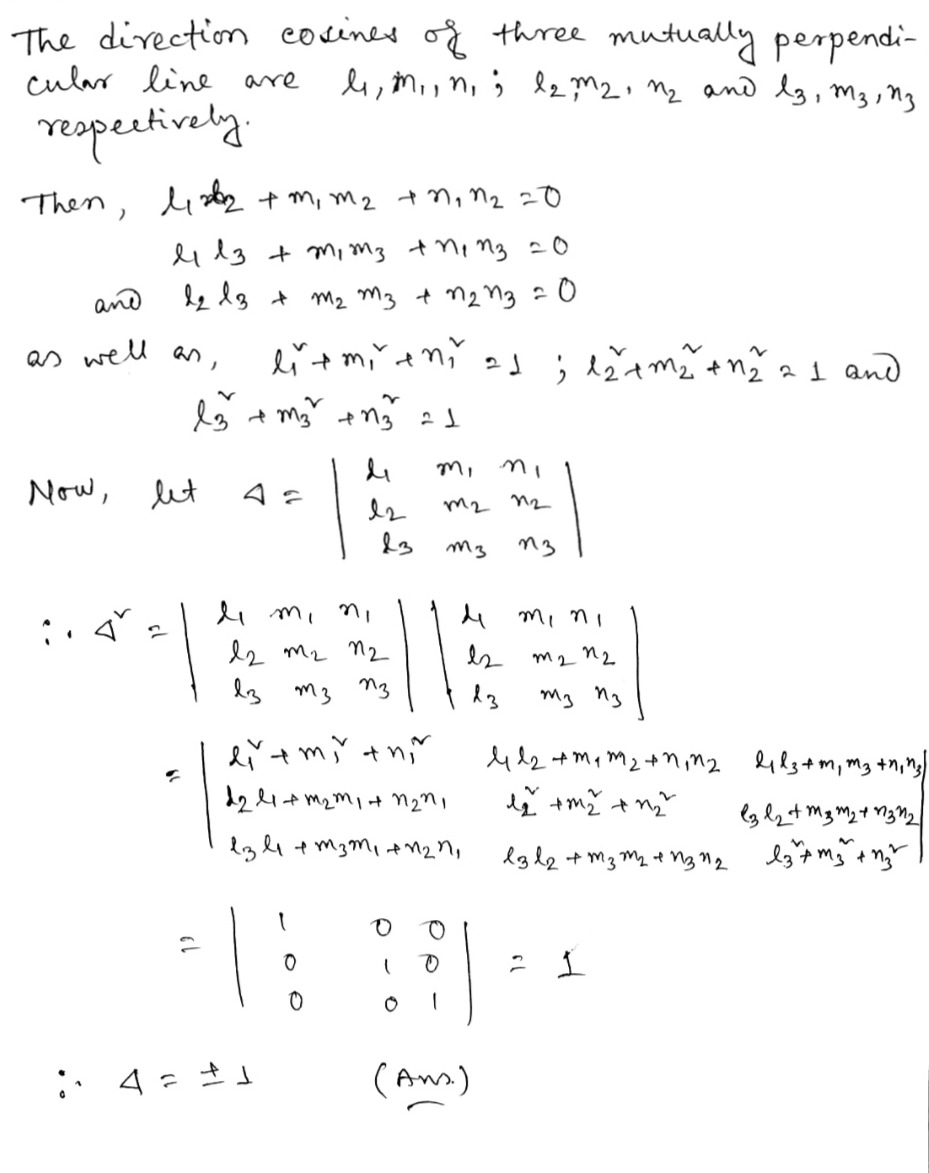 The direction cosines of three mutually perpendi-
cular line are l₁, m₁, n₁ ; l₂, m₂, n₂ and l₃, m₃, n₃
respectively.
Then, l₁ l₂ + m₁ m₂ + n₁ n₂ = 0
l₁ l₃ + m₁ m₃ + n₁ n₃ = 0
and l₂ l₃ + m₂ m₃ + n₂ n₃ = 0
as well as, l₁² + m₁² + n₁² = 1 ; l₂² + m₂² + n₂² = 1 and
l₃² + m₃² + n₃² = 1
Now, let Δ = | l₁ m₁ n₁ |
| l₂ m₂ n₂ |
| l₃ m₃ n₃ |
∴ Δ² = | l₁ m₁ n₁ | | l₁ m₁ n₁ |
| l₂ m₂ n₂ | | l₂ m₂ n₂ |
| l₃ m₃ n₃ | | l₃ m₃ n₃ |
= | l₁² + m₁² + n₁² l₁ l₂ + m₁ m₂ + n₁ n₂ l₁ l₃ + m₁ m₃ + n₁ n₃ |
| l₂ l₁ + m₂ m₁ + n₂ n₁ l₂² + m₂² + n₂² l₃ l₂ + m₃ m₂ + n₃ n₂ |
| l₃ l₁ + m₃ m₁ + n₂ n₁ l₃ l₂ + m₃ m₂ + n₃ n₂ l₃² + m₃² + n₃² |
= | 1 0 0 |
| 0 1 0 | = 1
| 0 0 1 |
∴ Δ = ± 1 (Ans.)